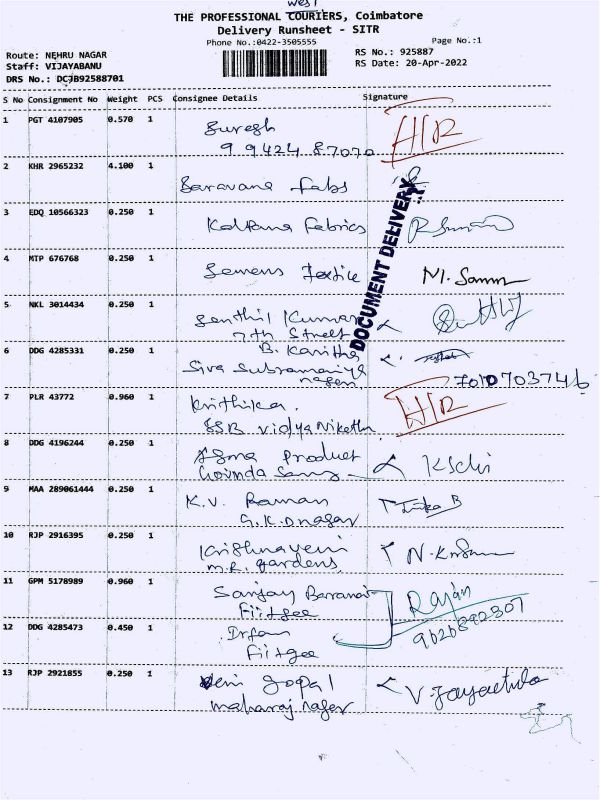 West
THE PROFESSIONAL COURIERS, Coimbatore
Delivery Runsheet - SITR
Phone No.:0422-3505555
Page No.:1
Route: NEHRU NAGAR
RS No.: 925887
Staff: VIJAYABANU
RS Date: 20-Apr-2022
DRS No.: DCJB92588701
S No Consignment No Weight PCS Consignee Details Signature
1 PGT 4107905 0.570 1 Suresh
9 9424 87070
2 KHR 2965232 4.100 1
Saravana Fabs
3 EDQ 10566323 0.250 1 Kalpana Fabrics
4 MTP 676768 0.250 1
Semens Textile M. Samm
DOCUMENT DELIVERY
5 NKL 3014434 0.250 1 Senthil Kumar
7th Street
6 DDG 4285331 0.250 1 B. Kavitha
Siva Subramaniya
nagar 7010703746
7 PLR 43772 0.960 1 Krithika.
SSB Vidya Niketan
8 DDG 4196244 0.250 1 Product
Govinda
9 MAA 289061444 0.250 1 K.V. Raman
G.K.D nagar
10 RJP 2916395 0.250 1 Krishnaveni
M.R. gardens
11 GPM 5178989 0.960 1 Sanjay Rajan
Fiitgee
12 DDG 4285473 0.450 1 Irfan
Fiitgee
13 RJP 2921855 0.250 1 Veni Gopal
maharaj nagar